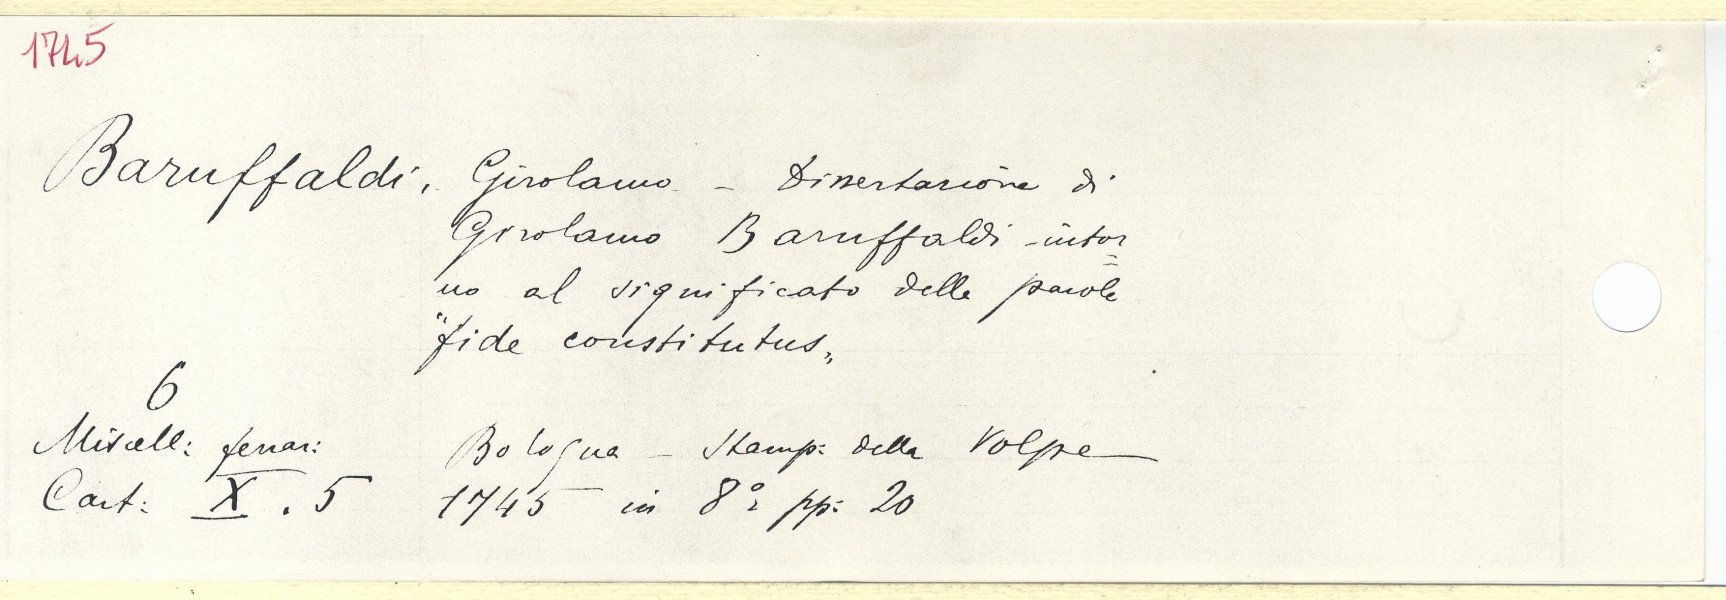 1745
Baruffaldi, Girolamo - Dissertazione di
Girolamo Baruffaldi intor=
no al significato delle parole
"fide constitutus„
6
Miscell: ferrar: Bologna - Stamp: della Volpe
Cart: X . 5 1745 in 8° pp: 20